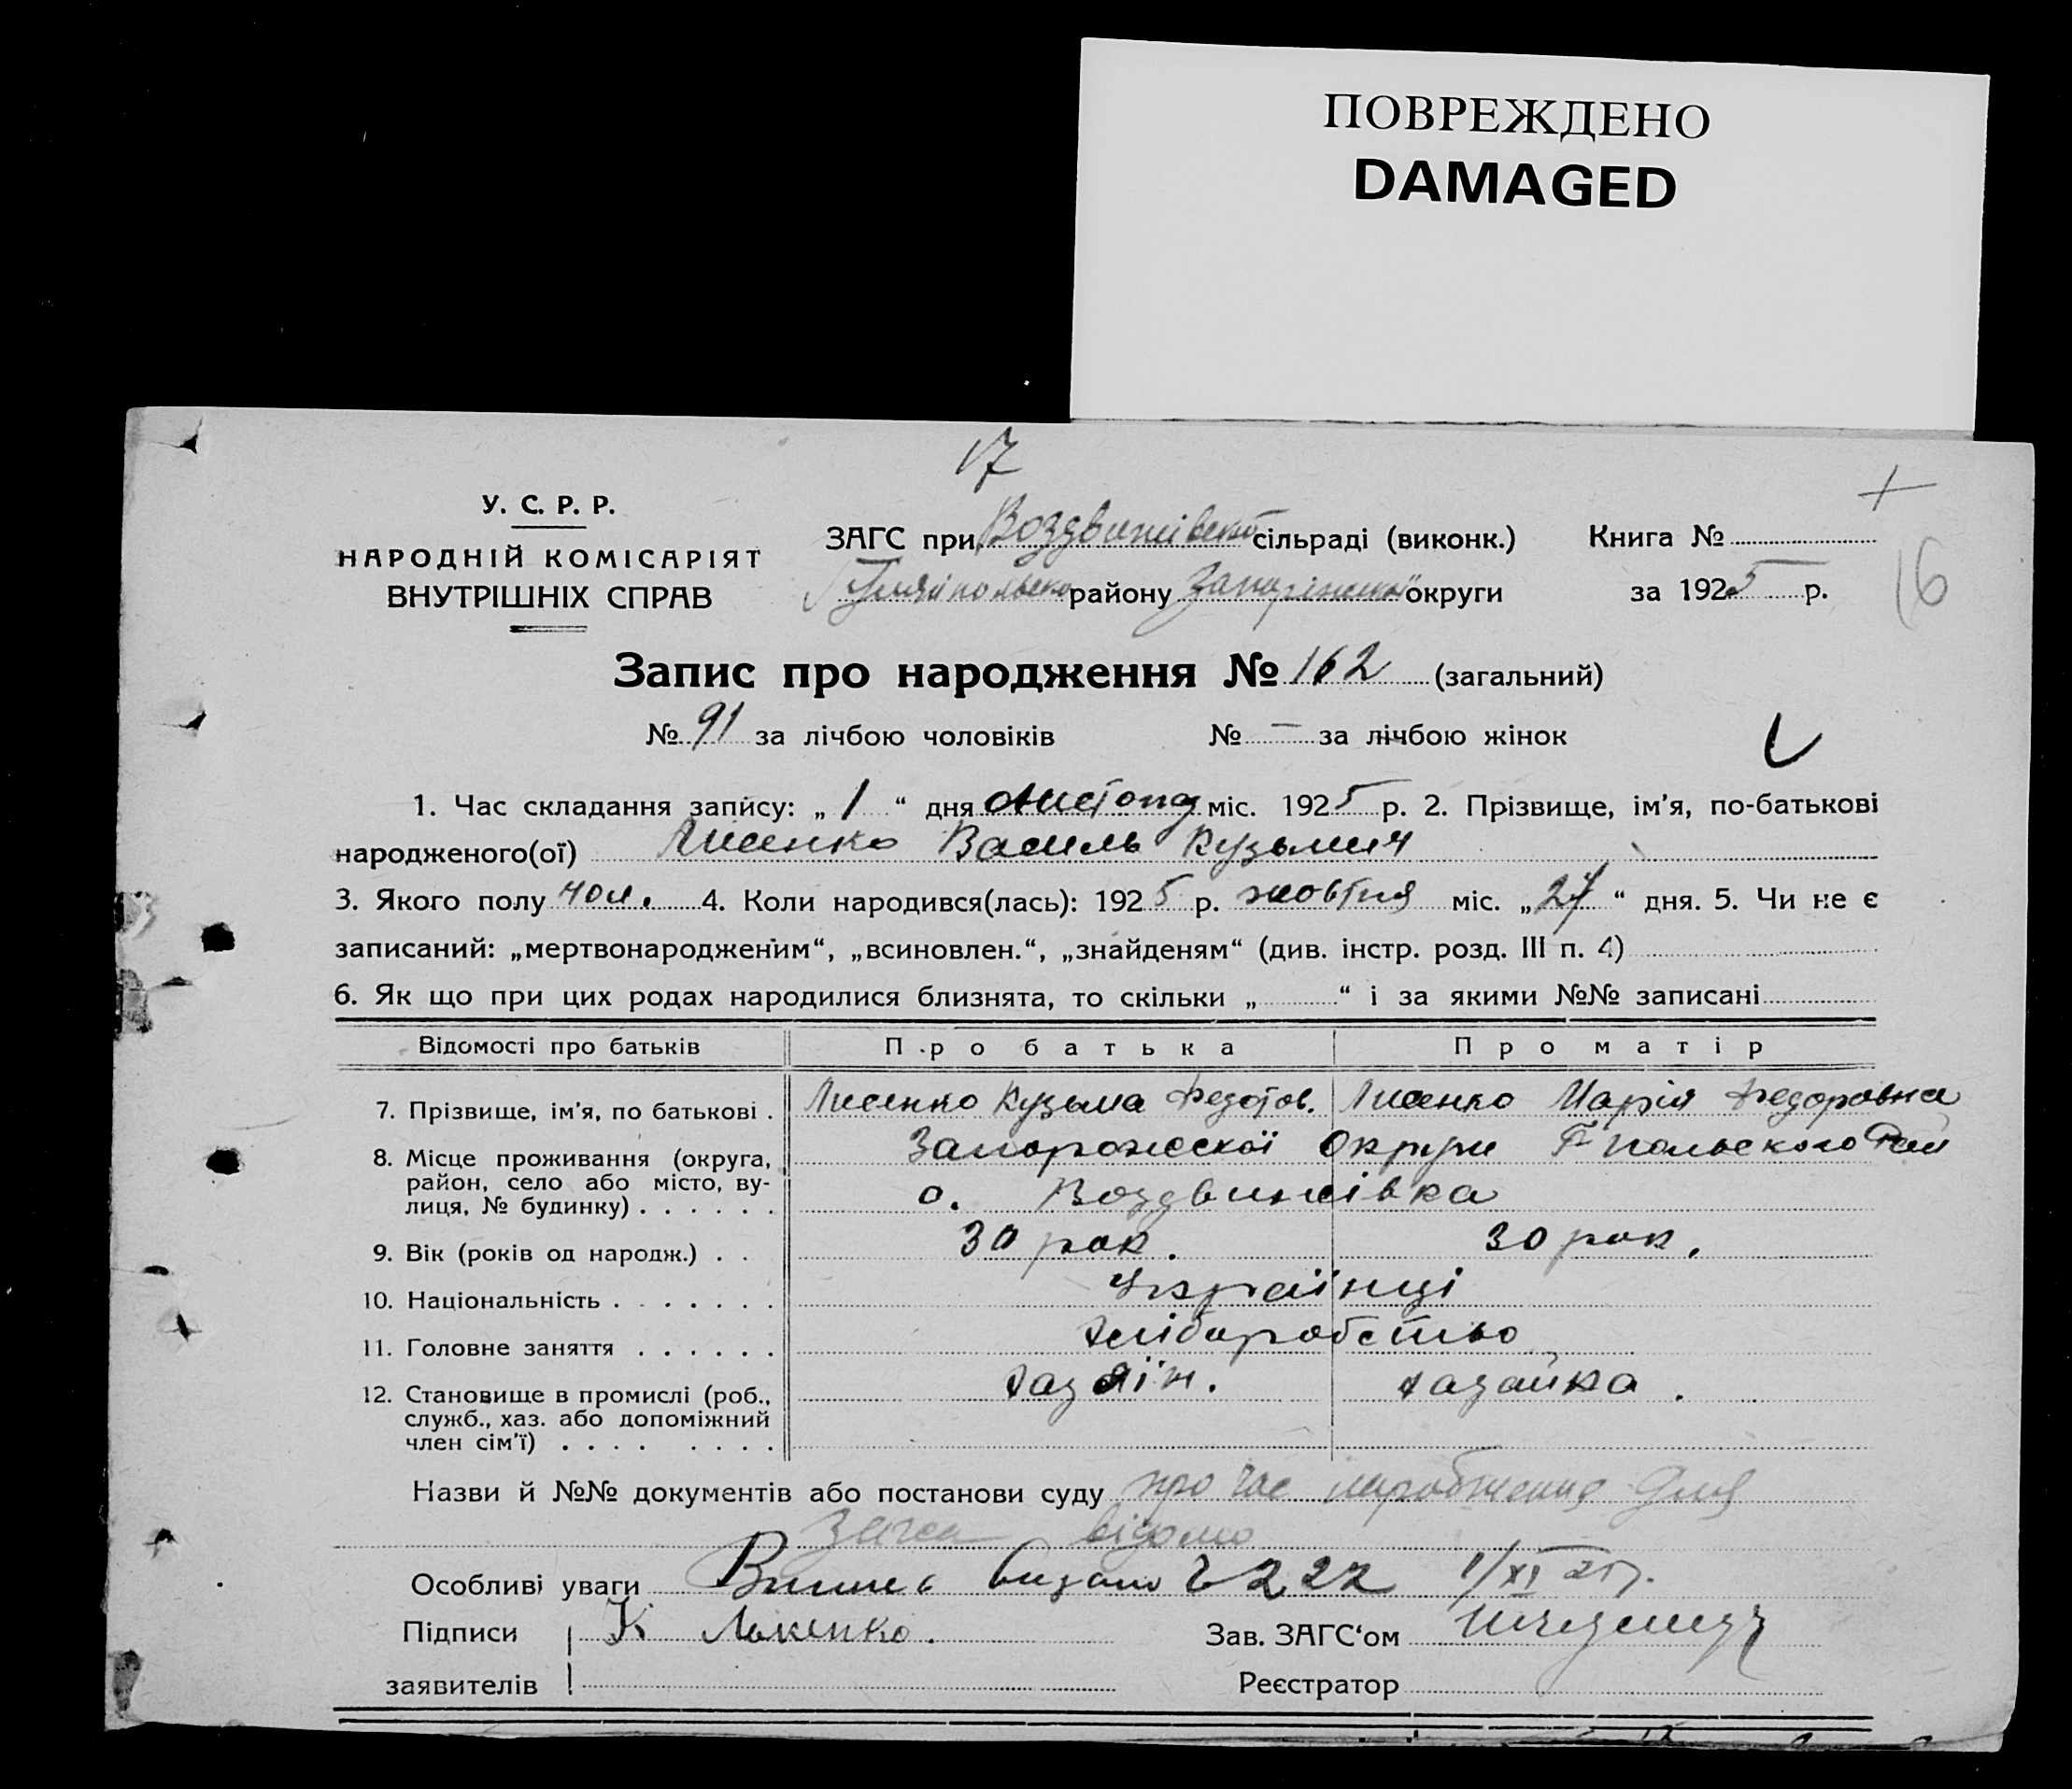 ПОВРЕЖДЕНО
DAMAGED
17
У. С. Р. Р.
НАРОДНІЙ КОМІСАРІЯТ
ВНУТРІШНІХ СПРАВ
ЗАГС при Воздвижівській сільраді (виконк.) Книга №
Гуляйпольсько району Запоріжської округи за 1925 р.
16
Запис про народження № 162 (загальний)
№ 91 за лічбою чоловіків № — за лічбою жінок
1. Час складання запису: „ 1 “ дня листопад міс. 1925 р. 2. Прізвище, ім’я, по-батькові
народженого(ої) Лисенко Василь Кузьмич
3. Якого полу чол. 4. Коли народився(лась): 1925 р. жовтня міс. „27“ дня. 5. Чи не є
записаний: „мертвонародженим“, „всиновлен.“, „знайденям“ (див. інстр. розд. III п. 4)
6. Як що при цих родах народилися близнята, то скільки „ “ і за якими №№ записані
Відомості про батьків Про батька Про матір
7. Прізвище, ім’я, по батькові . Лисенко Кузьма Федотов. Лисенко Марія Федоровна
8. Місце проживання (округа, Запорожескої Округи Г польского Рай
район, село або місто, ву-
лиця, № будинку) . . . . . . с. Воздвижівка
9. Вік (років од народж.) . . 30 рок. 30 рок.
10. Національність . . . . . . . Українці
11. Головне заняття . . . . . . Хліборобство
12. Становище в промислі (роб., хазяїн. хазайка.
служб., хаз. або допоміжний
член сім’ї) . . . . . . . .
Назви й №№ документів або постанови суду про час народження для
Загса відомо
Особливі уваги Виписъ видано 222 1/XI 25 р.
Підписи К Лисенко.
Зав. ЗАГС‘ом
заявителів
Реєстратор